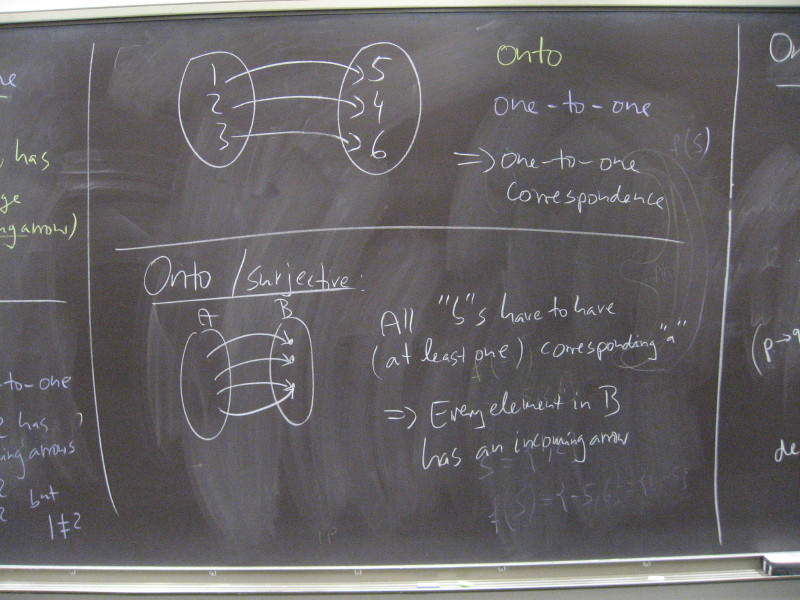 ne
, has
ge
ng arrow)
-to-one
has
ing arrows
2 but
2 1≠2
1 5
2 4
3 6
Onto
one-to-one
f(S)
=> one-to-one
correspondence
Onto / Surjective:
A B
All "b"s have to have
(at least one) corresponding "a"
=> Every element in B
has an incoming arrow
On
(p→q
de